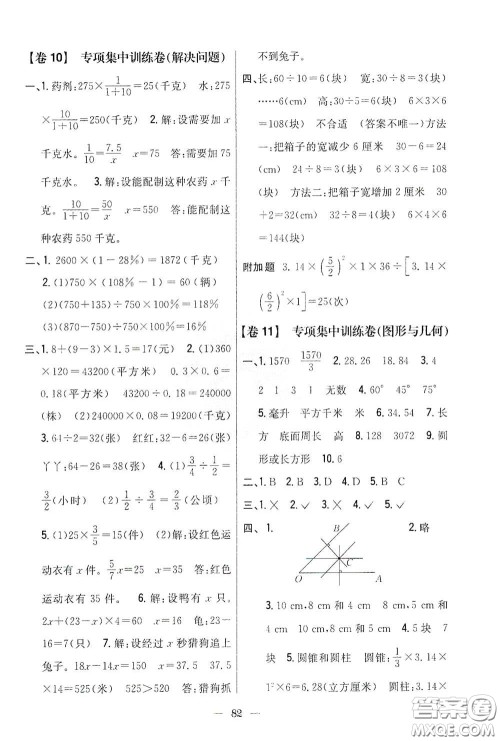 【卷10】 专项集中训练卷(解决问题)
一、1. 药剂:275×1/(1+10)=25(千克) 水:275×
10/(1+10)=250(千克) 2. 解:设需要加 x
千克水。 1/10=7.5/x x=75 答:需要加75千
克水。 3. 解:设能配制这种农药 x 千
克。10/(1+10)=50/x x=550 答:能配制这
种农药550千克。
二、1. 2600×(1-28%)=1872(千克)
2. (1)750×(108%-1)=60(辆)
(2)(750+135)÷750=118%
(3)(750+120)÷750=116%
三、1. 8+(9-3)×1.5=17(元) 2. (1)360
×120=43200(平方米) 0.3×0.6=
0.18(平方米) 43200÷0.18=240000
(株) (2)240000×0.08=19200(千克)
3. 64÷2=32(张) 红红:32-6=26(张)
丫丫:64-26=38(张) 4. (1)3/4÷1/2=
3/2(小时) (2)1/2÷3/4=2/3(公顷)
5. (1)25×3/5=15(件) (2)解:设红色运
动衣有 x 件。5/7x=25 x=35 答:红色
运动衣有35件。 6. 解:设鸭有 x 只。
2x+(23-x)×4=60 x=16 龟:23-
16=7(只) 7. 解:设 x 秒猎狗追上
兔子。18x-14x=150 x=37.5 37.5
×14=525(米) 525>520 答:猎狗抓
不到兔子。
四、长:60÷10=6(块) 宽:30÷8=3(块)
……6(cm) 高:24÷4=6(块) 6×3×6
=108(块) 不合适 (答案不唯一)方法
一:把箱子的宽减少6厘米 30-6=24
(cm) 24÷8=3(块) 6×3×6=
108(块) 方法二:把箱子宽增加2厘米
30+2=32(cm) 32÷8=4(块) 6×4×6
=144(块)
附加题 3.14×(5/2)²×1×36÷[3.14×
(6/2)²×1]=25(次)
【卷11】 专项集中训练卷(图形与几何)
一、1. 1570 1570/3 2. 28.26 18.84 3. 4
2 1 3 1 无数 4. 60° 45° 75°
5. 毫升 平方千米 米 6. 34.54 7. 长
方 底面周长 高 8. 128 3072 9. 圆
形或长方形 10. 6
二、1. D 2. A 3. B 4. B 5. C
三、1. ✓ 2. × 3. × 4. ✓ 5. ✓
四、1. 2. 略
B
C
O A
3. 10 cm,8 cm和4 cm 5块 4块 7
块 4. 圆锥和圆柱 圆锥:1/3×3.14×
1²×6=6.28(立方厘米) 圆柱:3.14×
82